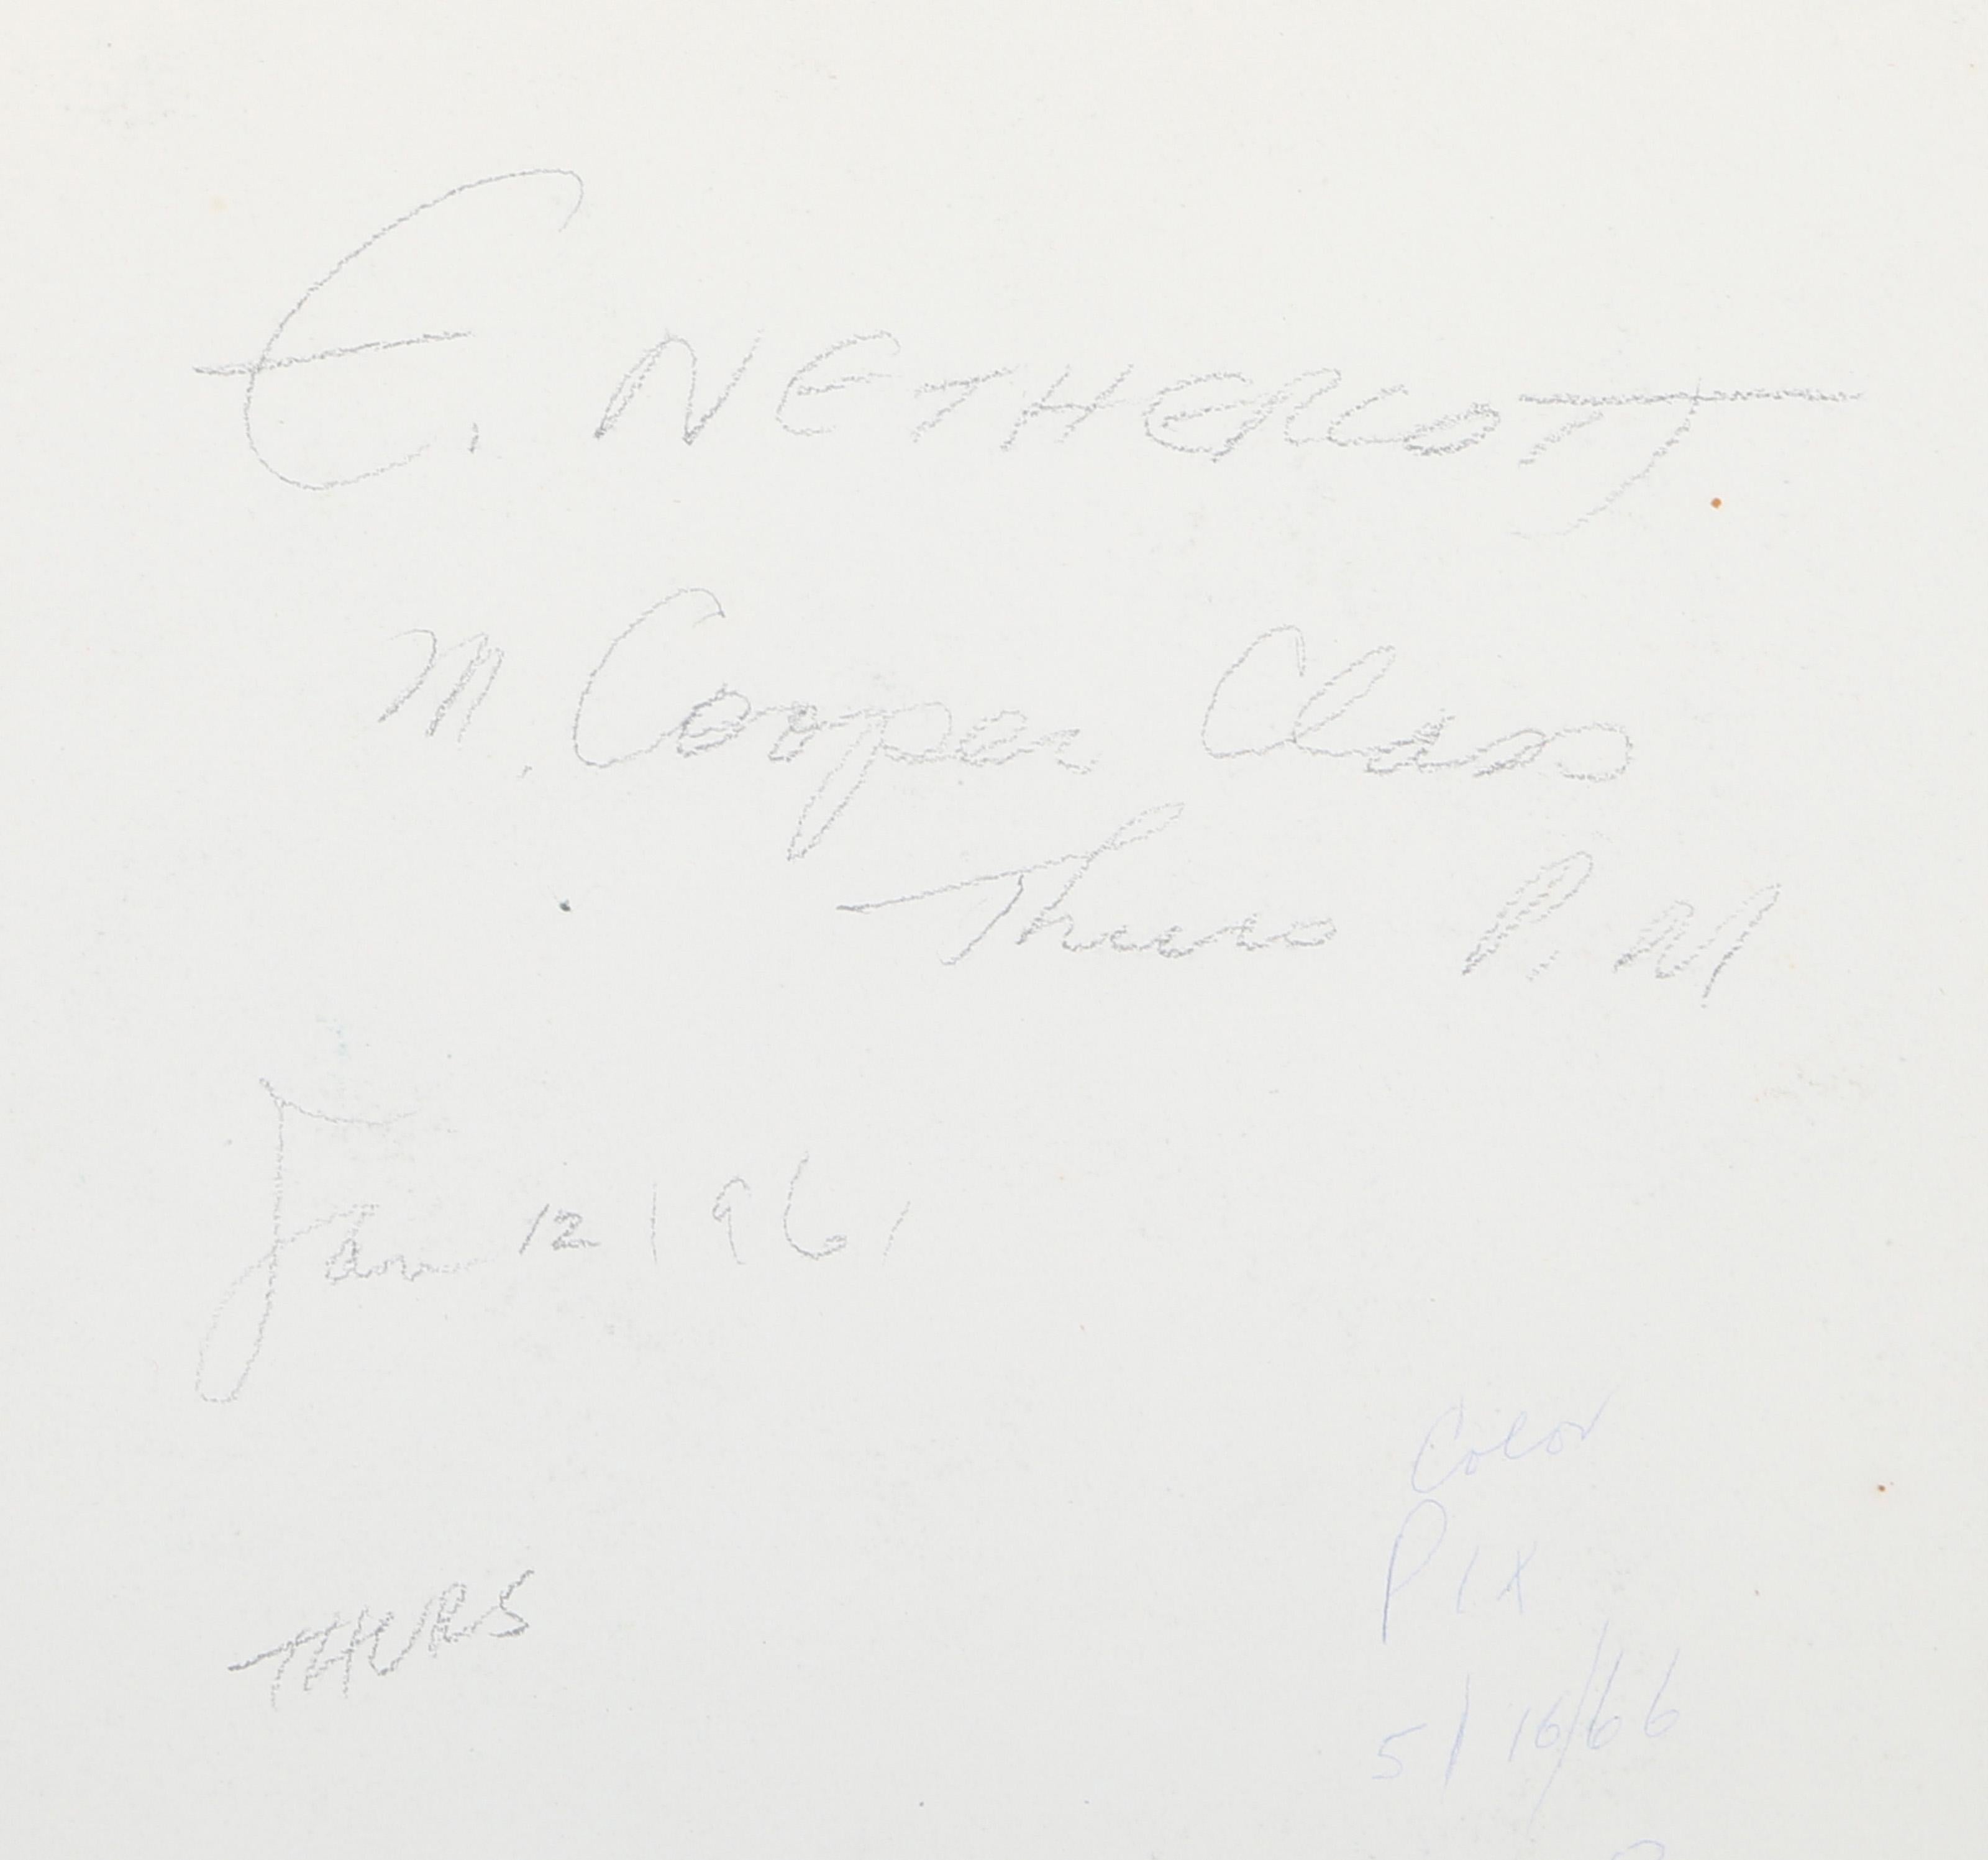 E. NETHERCOTT
M. Cooper Class
Thurs P. M
Jan 12 1961
THURS
Color
PIX
5/16/66